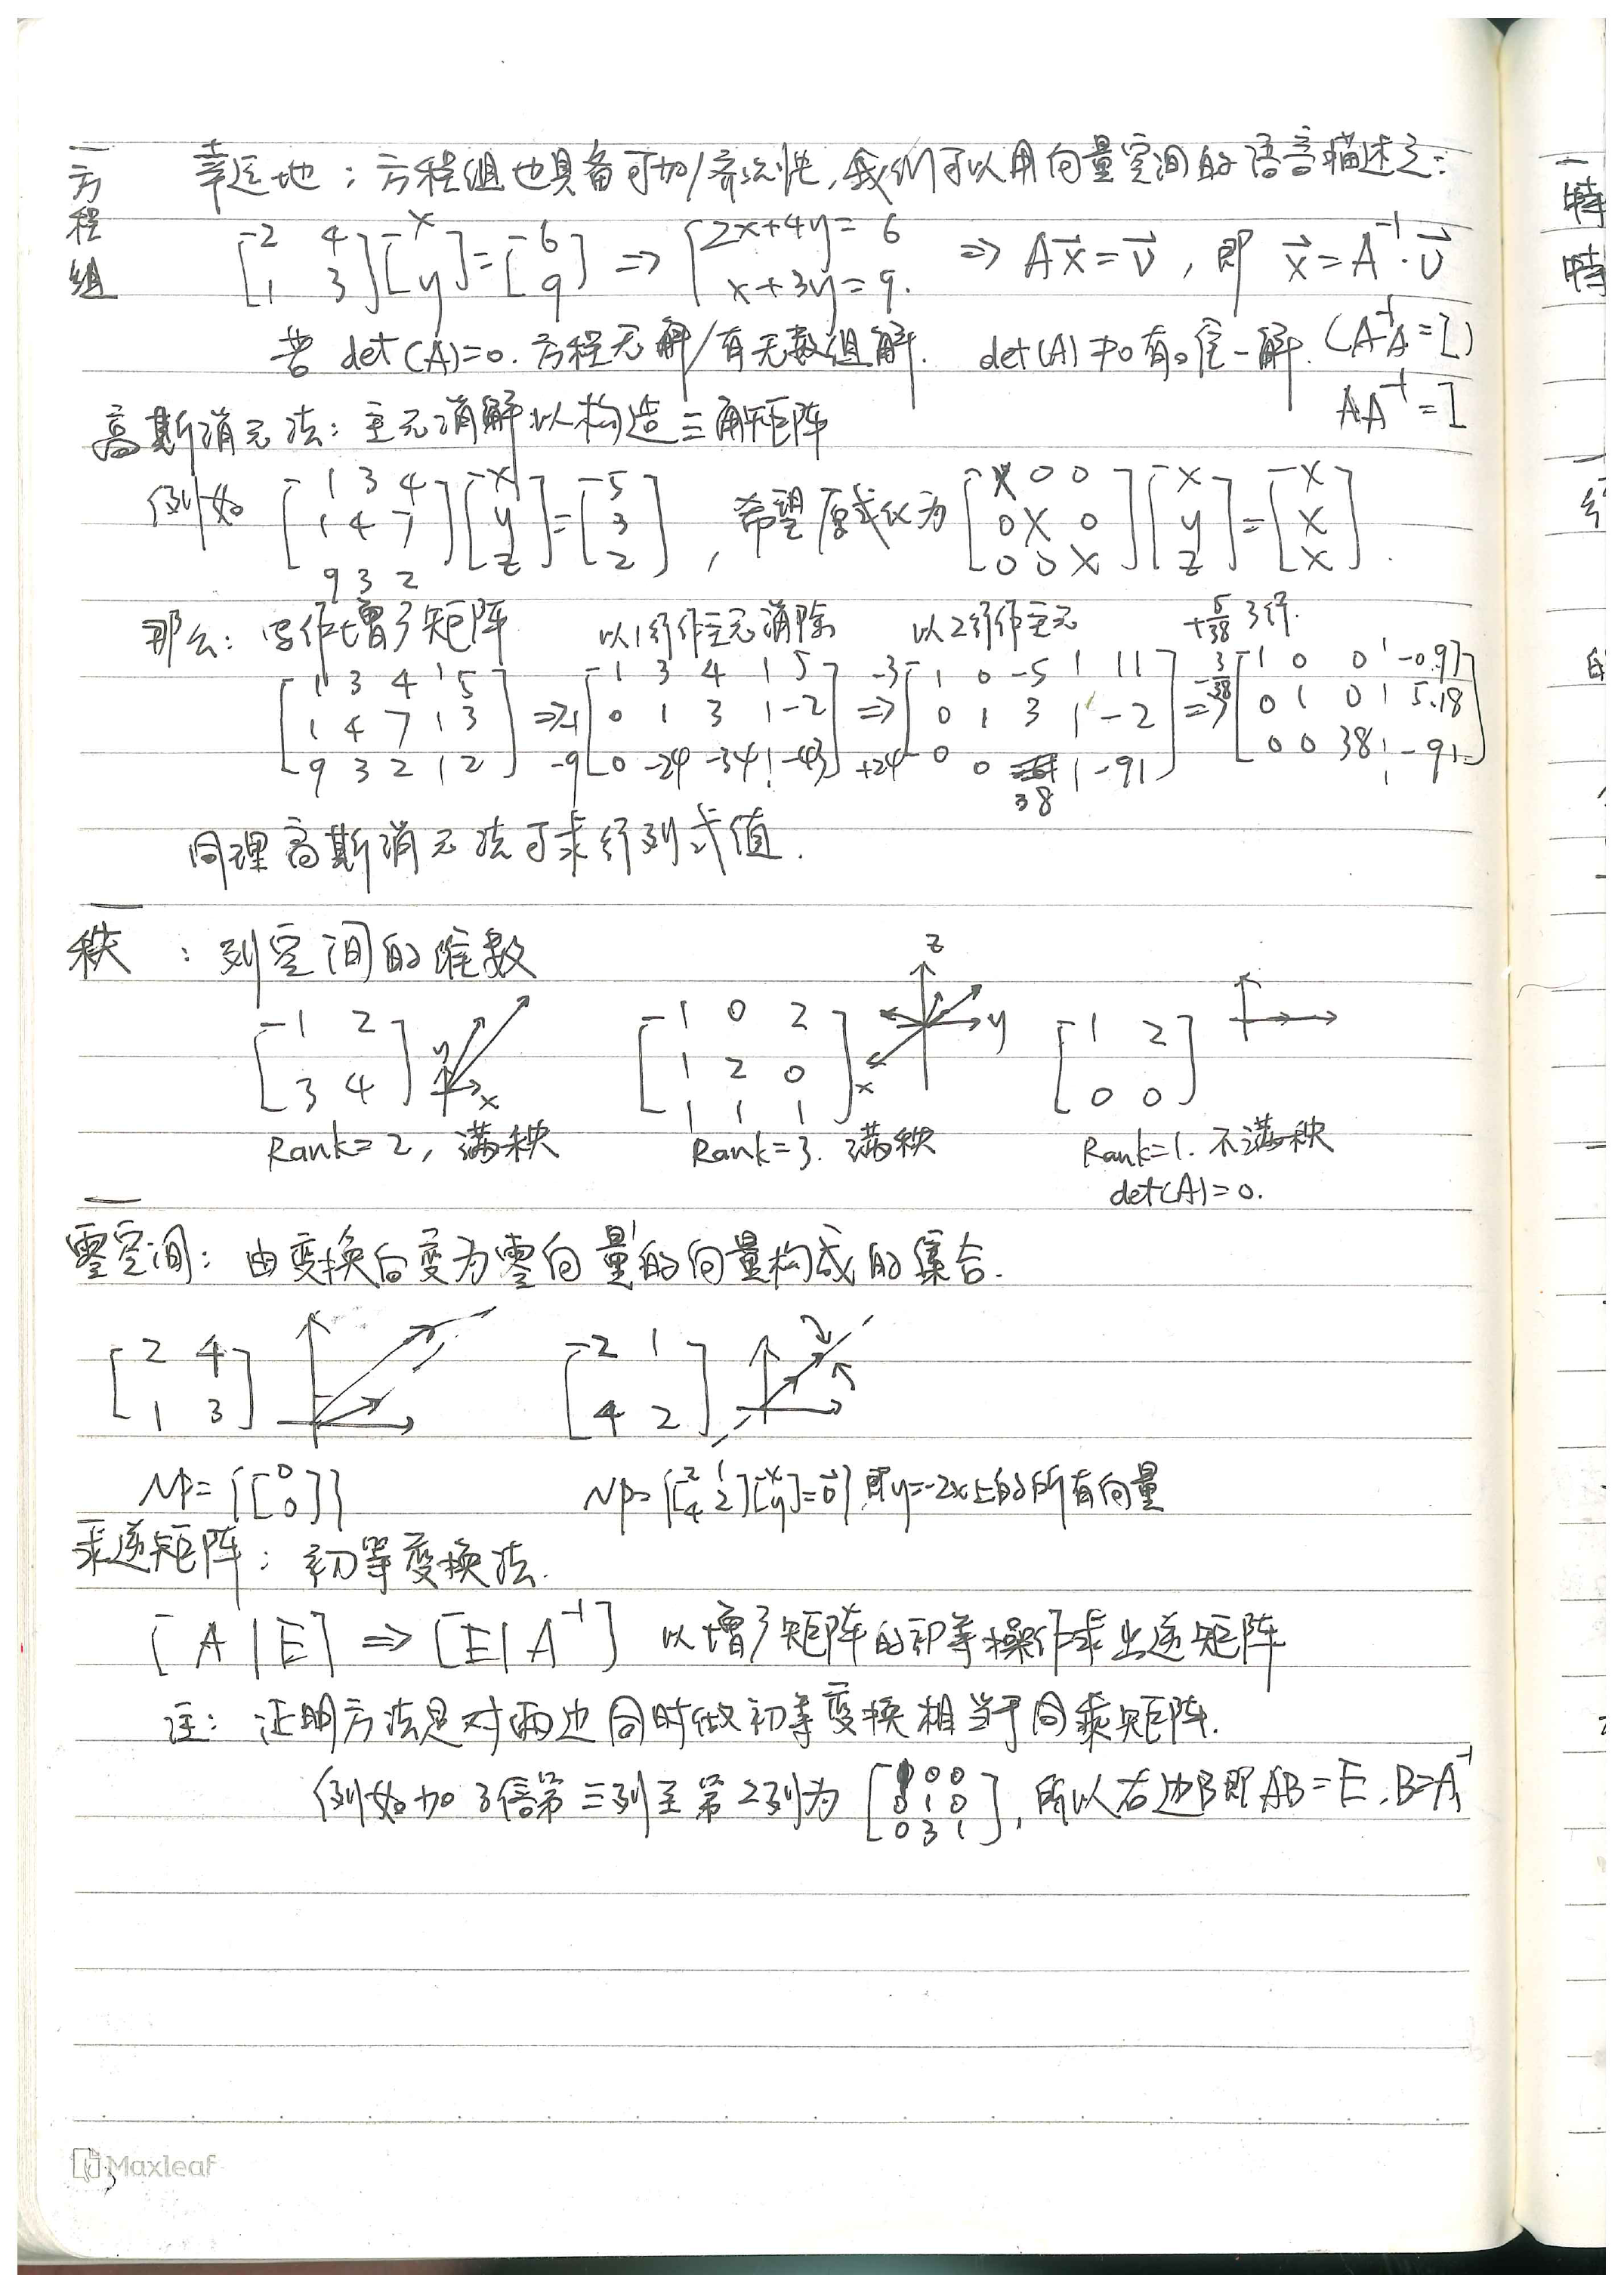 方程组
幸运地：方程组也具备可加/齐次性,我们可以用向量空间的语言描述之:
[2 4; 1 3][x; y]=[6; 9] ⇒ {2x+4y=6; x+3y=9. ⇒ Ax⃗=v⃗, 即 x⃗=A⁻¹·v⃗
若 det(A)=0. 方程无解/有无数组解. det(A)≠0有。唯一解. (A⁻¹A=I)
AA⁻¹=I
高斯消元法: 主元消解以构造三角矩阵
例如 [1 3 4; 1 4 7; 9 3 2][x; y; z]=[5; 3; 2], 希望原式化为 [X 0 0; 0 X 0; 0 0 X][x; y; z]=[X; X; X].
那么: 写作增广矩阵 以1行作主元消除 以2行作主元 +5/38 3行.
[1 3 4 | 5; 1 4 7 | 3; 9 3 2 | 2] ⇒ -1 -9 [1 3 4 | 5; 0 1 3 | -2; 0 -24 -34 | -43] ⇒ -3 +24 [1 0 -5 | 11; 0 1 3 | -2; 0 0 38 | -91] ⇒ -3/38 [1 0 0 | -0.97; 0 1 0 | 5.18; 0 0 38 | -91]
同理高斯消元法可求行列式值.
秩 : 列空间的维数
[1 2; 3 4] y x [1 0 2; 1 2 0; 1 1 1] z y x [1 2; 0 0]
Rank=2, 满秩 Rank=3. 满秩 Rank=1. 不满秩
det(A)=0.
零空间: 由变换后变为零向量的向量构成的集合.
[2 4; 1 3] [2 1; 4 2]
Np={[0; 0]} Np={[2 1; 4 2][x; y]=0⃗}, 即y=-2x上的所有向量
求逆矩阵: 初等变换法.
[A|E] ⇒ [E|A⁻¹] 以增广矩阵的初等操作求出逆矩阵
注: 证明方法是对两边同时做初等变换相当于同乘矩阵.
例如加3倍第三列至第2列为 [1 0 0; 0 1 0; 0 3 1], 所以右边B即AB=E, B=A⁻¹
Maxleaf
特
特
的